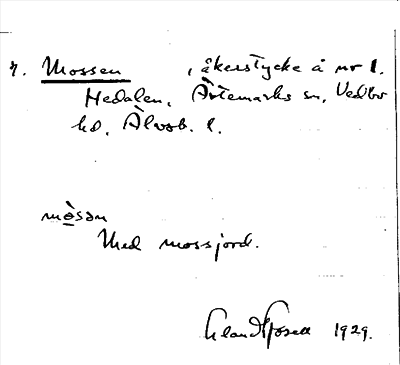 7. Mossen, åkerstycke å nr 1.
Hedalen, Ärtemarks sn, Vedbo
hd, Älvsb. l.
mòsən
Med mossjord.
1929.